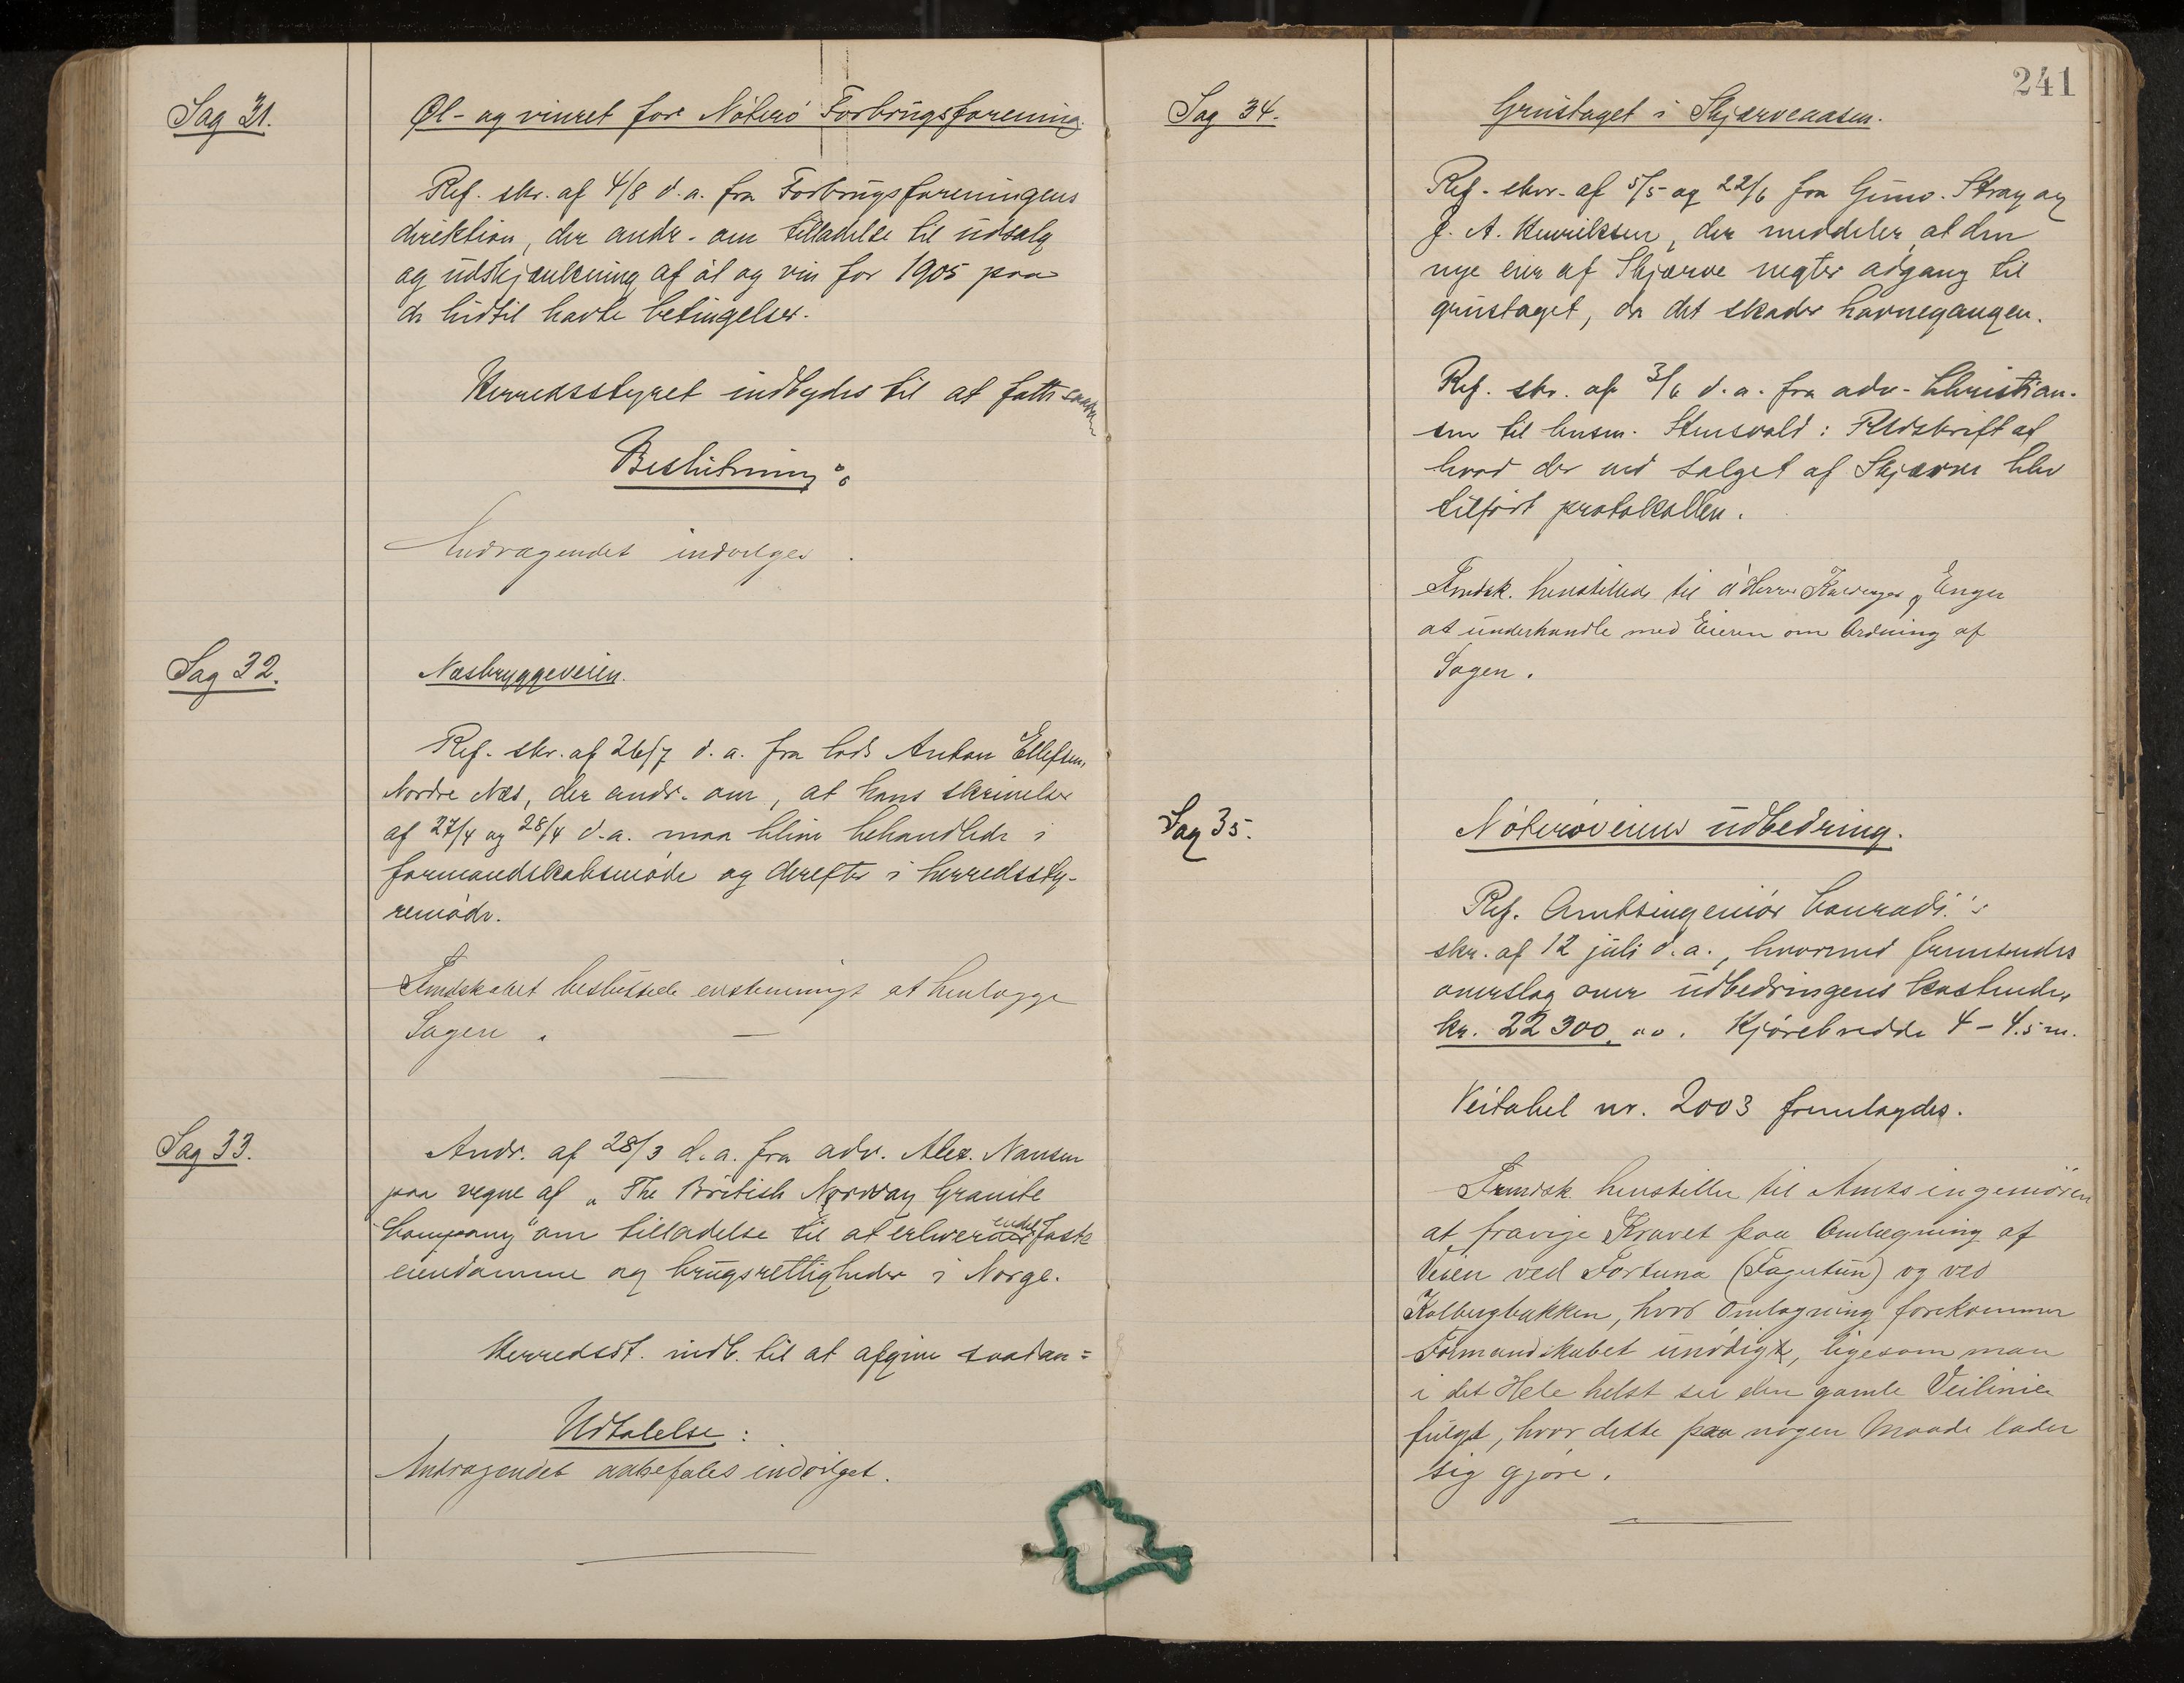 Sag 31.
Øl- og vinret for Nøterø Forbrugsforening.
Ref. skr. af 4/8 d. a. fra Forbrugsforeningens
direktion, der andr. om tilladelse til udsalg
og udskjænkning af øl og vin for 1905 paa
de hidtil havte betingelser.
Herredsstyret indbydes til at fatte saadan
Beslutning:
Andragendet indvilges.
Sag 32.
Næsbryggeveien.
Ref. skr. af 26/7 d. a. fra lods Anton Ellefsen,
Nordre Næs, der andr. om, at hans skrivelser
af 27/4 og 28/4 d. a. maa blive behandlede i
formandskabsmøde og derefter i herredssty-
remøde.
Fmdskabet besluttede enstemmigt at henlægge
Sagen.
Sag 33.
Andr. af 28/3 d. a. fra adv. Alex. Nansen
paa vegne af „The British Norway Granite
Company" om tilladelse til at erhverve endel faste
eiendomme og brugsrettigheder i Norge.
Herredsst. indb. til at afgive saadan=
Udtalelse:
Andragendet anbefales indvilget.
241
Sag 34.
Grustaget i Skjærveaasen.
Ref. skr. af 5/5 og 22/6 fra Stray og
J. A. Henriksen, der meddeler at den
nye eier af Skjærve negter adgang til
grustaget, da det skader havnegangen.
Ref. skr. af 3/6 d. a. fra adv. Christian-
sen til lensm. Stensvold: Udskrift af
hvad der ved salget af Skjærve blev
tilført protokollen.
Fmdsk. henstillede til d'Herrer og Enger
at underhandle med Eieren om Ordning af
Sagen.
Sag 35.
Nøterøveiens udbedring.
Ref. Amtsingeniør Conradi's
skr. af 12 juli d. a., hvormed fremsendes
overslag over udbedringens kostende,
kr. 22 300,00. Kjørebredde 4 – 4.5 m.
Veitabel nr. 2003 fremlagdes.
Frmdsk. henstiller til Amtsingeniøren
at fravige Kravet paa Omlægning af
Veien ved Fortuna (Fagertun) og ved
Kolbergbakken, hvor Omlægning forekommer
Formandskabet unødig, ligesom man
i det Hele helst ser den gamle Veilinie
fulgt, hvor dette paa nogen Maade lader
sig gjøre.